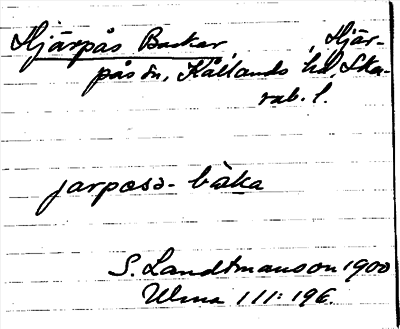 Hjärpås Backar, , Hjär-
pås sn, Kållands hd, Ska-
rab. l.
jarpæsə- baka
S. Landtmanson 1900
Uluna 111: 196.